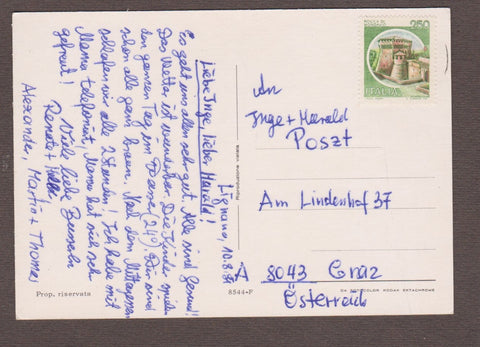 Lignano, 10.8.81
Liebe Inge, lieber Harald!
Es geht uns allen sehr gut. Alle sind gesund!
Das Wetter ist wunderbar. Die Kinder
den ganzen Tag im (24°). Wir sind
schon alle ganz braun. Nach dem Mittagessen
schlafen wir alle 2 Stunden! Ich habe mit
Mama telefoniert, Mama hat sich sehr
gefreut!
Viele liebe Busserln
Renate +
Alexander, Martin + Thomas
Prop. riservata
8544-F
250
ITALIA
An
Inge + Harald
Poszt
Am Lindenhof 37
A 8043 Graz
Österreich
DA FOTOCOLOR KODAK EKTACHROME